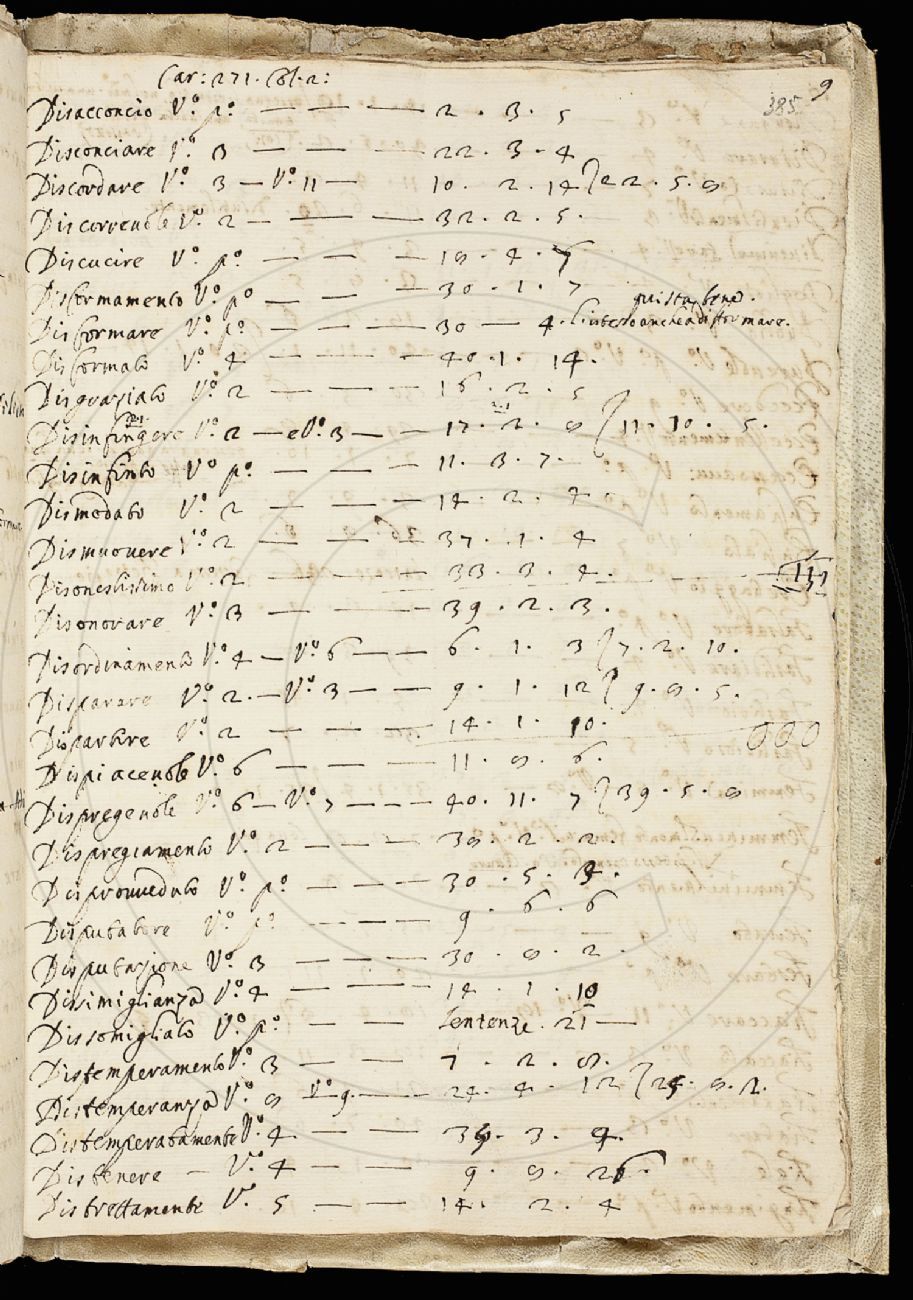 Car: 271. Col. 2:
9
385
Disacconcio Vº. pº. — — — — 2 . 3 . 5
Disconciare Vº. 3 — — — 22 . 3 . 4
Discordare Vº. 3 — Vº. 11 — 10 . 2 . 14 } 22 . 5 . 8
Discorrevole Vº. 2 — — — 32 . 2 . 5 .
Discucire Vº. pº. — — — 18 . 4 .
Disformamento Vº. pº — — — 30 . 1 . 7
quista bene.
Disformare Vº. pº — — — 30 — 4 . l'istesso anche a difformare.
Disformato Vº. 4 — — — 40 . 1 . 14 .
Disgraziato Vº. 2 — — — 16 . 2 . 5
Disinfingere Vº. 2 — e Vº. 3 — — 17 . 2 . 8 } 11 . 10 . 5 .
Disinfinto Vº pº. — — — 11 . 3 . 7 .
Dismodato Vº. 2 — — — 14 . 2 . 4 .
Dismuovere Vº. 2 — — — 37 . 1 . 4
Disonestissimo Vº. 2 — — — 33 . 3 . 4 .
Disonorare Vº. 3 — — — 39 . 2 . 3 .
Disordinamento Vº. 4 — Vº. 6 — — 6 . 1 . 3 } 7 . 2 . 10 .
Disparare Vº. 2 . — Vº. 3 — — 9 . 1 . 12 } 9 . 8 . 5 .
Dispartire Vº. 2 — — — 14 . 1 . 10 .
000
Dispiacevole Vº. 6 — — — 11 . 8 . 6 .
Dispregevole Vº. 6 — Vº. 7 — — 40 . 11 . 7 } 39 . 5 . 8
Dispregiamento Vº. 2 — — — 38 . 2 . 2 .
Disprovveduto Vº. pº — — — 30 . 5 . 4 .
Disputatore Vº. pº. — — — 9 . 6 . 6
Disputazione Vº. 3 — — — 30 . 8 . 2 .
Dissimiglianza Vº. 4 — — — 14 . 1 . 10
Dissomigliato Vº. pº. — — Sentenze . 21 —
Distemperamento Vº. 3 — — — 7 . 2 . 8 .
Distemperanza Vº. 8 Vº. 9 . — — 24 . 4 . 12 } 24 . 8 . 2 .
Distemperatamente Vº. 4 — — 39 . 3 . 4 .
Distenere — Vº. 4 — — 9 . 8 . 26 .
Distrettamente Vº. 5 — — — 14 . 2 . 4